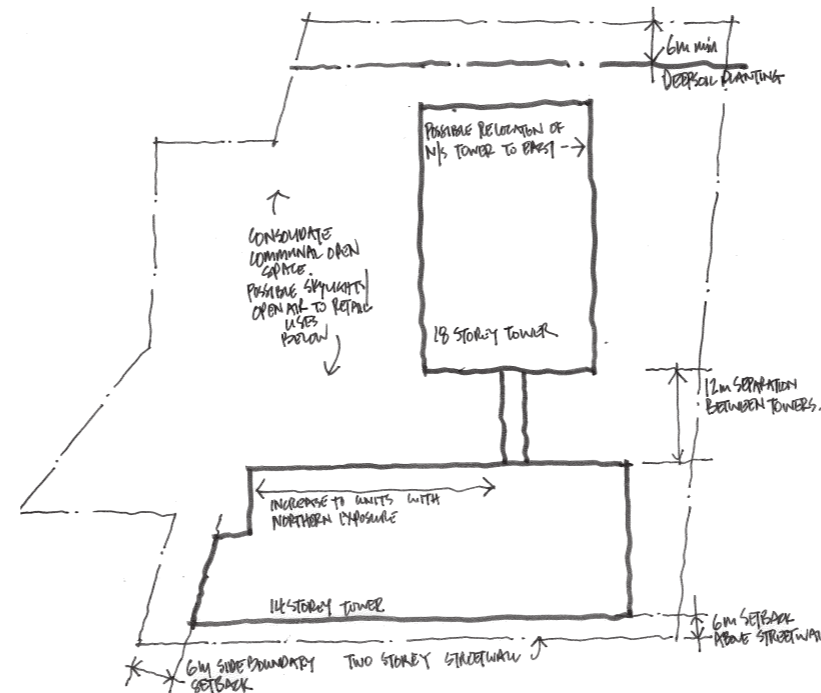 6m min
DEEPSOIL PLANTING
POSSIBLE RELOCATION OF
N/S TOWER TO EAST
CONSOLIDATE
COMMUNAL OPEN
SPACE.
POSSIBLE SKYLIGHTS/
OPEN AIR TO RETAIL
USES
BELOW
18 STOREY TOWER
12m SEPARATION
BETWEEN TOWERS.
INCREASE TO UNITS WITH
NORTHERN EXPOSURE
14 STOREY TOWER
6m SETBACK
ABOVE STREETWALL
6m SIDE BOUNDARY
SETBACK
TWO STOREY STREETWALL